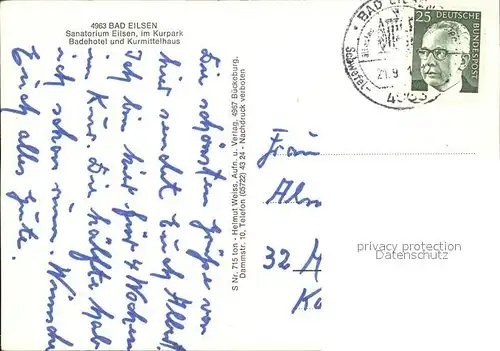 4963 BAD EILSEN
Sanatorium Eilsen, im Kurpark
Badehotel und Kurmittelhaus
Die schönsten Grüße von
hier sendet Euch
Ich bin hier für 4 Wochen
in Kur. Die Hälfte hab
ich schon rum. Wünsche
Euch alles Gute.
S Nr. 715 ton - Helmut Weiss, Aufn. u. Verlag, 4967 Bückeburg,
Dammstr. 10, Telefon (05722) 43 24 - Nachdruck verboten
BAD EILSEN
Schwefel-
21.9
4963
25 DEUTSCHE
BUNDESPOST
Frau
32
privacy protection
Datenschutz